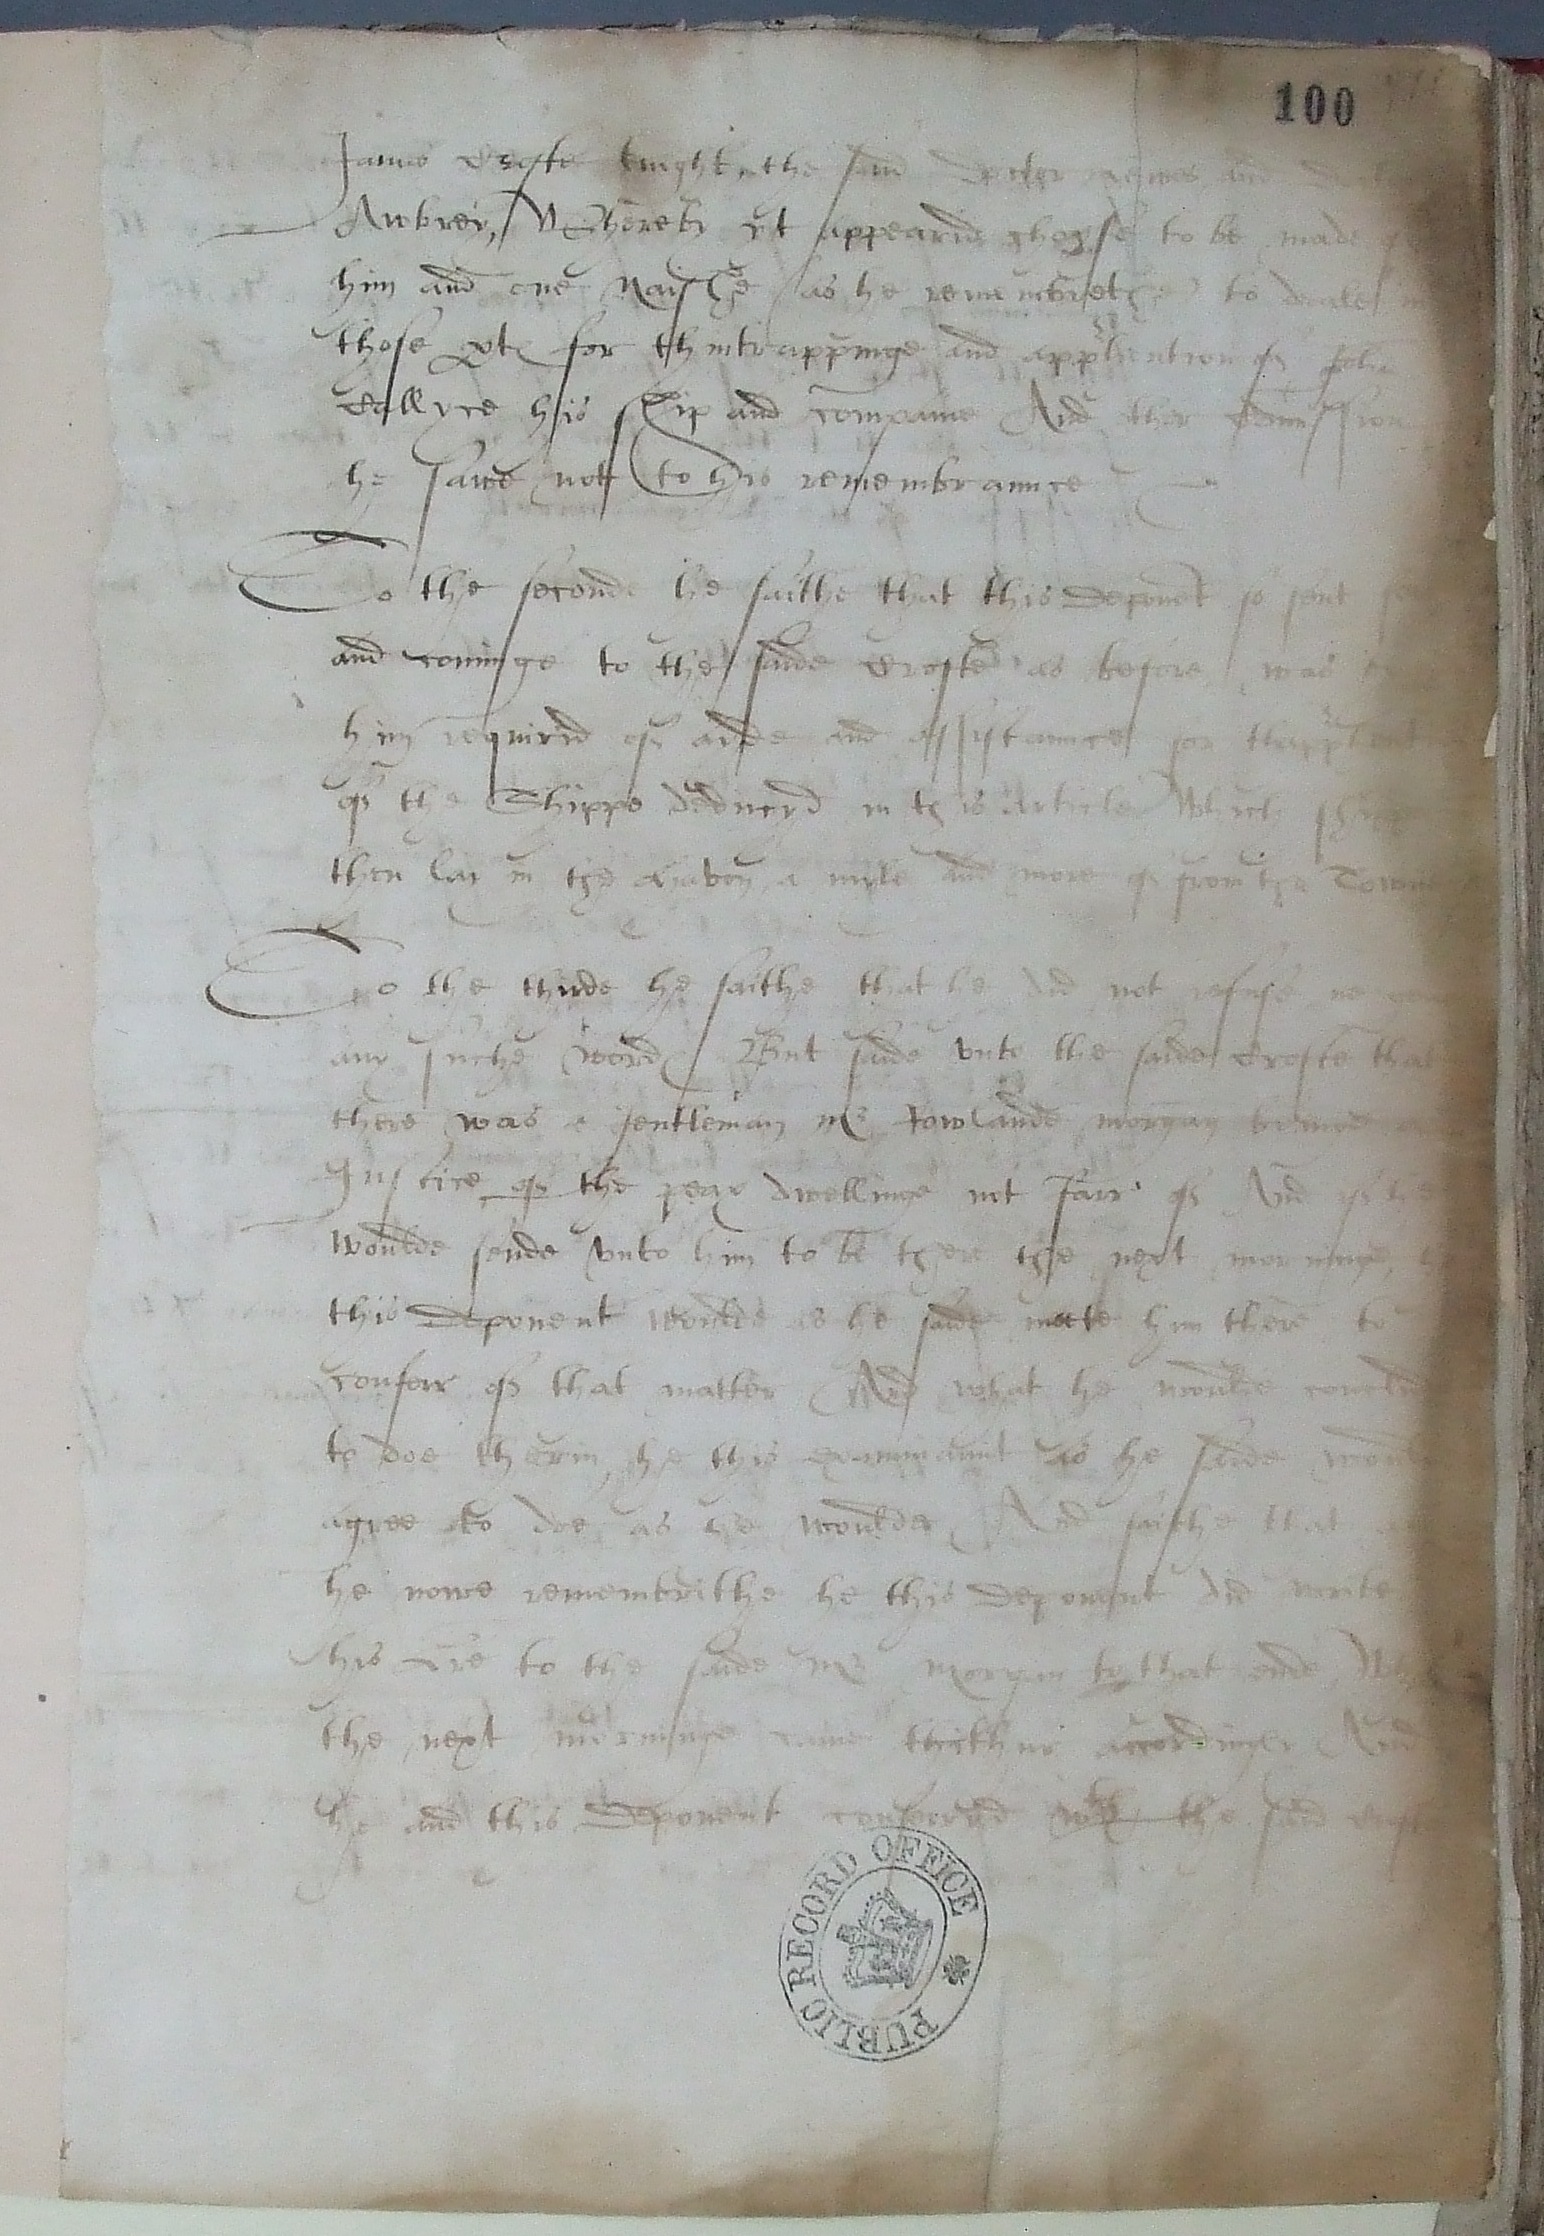 100
James Crofte knight, the said Doctor Lewes and
Awbrey, Wherebi yt apperid choyse to be made
him and one Naishe as he remembrethe to deale
those ptes for thintrappinge and apprhention of John
Callyce his ship and companie And ther Comission
he sawe not to his remembraunce
To the seconde he saithe that this deponent so sent
and cominge to the saide Crofte as before, was
him requirid of aide and assistaunce for thapprhention
of the Shippe deducyd in this Article Which shipp
then lay in the havon a myle and more of from the Towne
To the thirde he saithe that he did not refuse ne
any suche word But saide vnto the saide Crofte that
there was a Jentleman mr Rowlande morgan
Justice of the peax dwellinge not farr of And if he
woulde sende vnto him to be there the next morninge,
this deponent woulde as he saide meete him there to
conferr of that matter And what he woulde conclude
to doe therin, he this examinaunt as he saide would
agree to doe as he woulde, And saithe that
he nowe remembrithe he this deponent did write
his lre to the saide mr morgan to that ende, Wh
the next morninge came thithur accordingly And
he and this deponent conferrid wth the said Croft
PUBLIC RECORD OFFICE